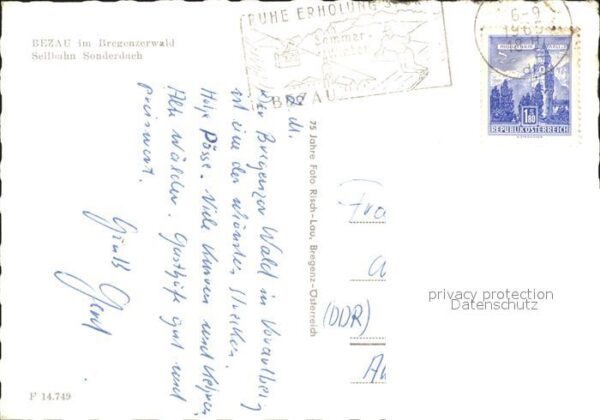 BEZAU im Bregenzerwald
Seilbahn Sonderdach
RUHE ERHOLUNG
Sommer-
BEZAU
6-9
1,80
REPUBLIK ÖSTERREICH
L. M.
Der Bregenzer Wald in Vorarlberg
ist eine der schönsten Strecken.
Hohe Pässe. Viele Kurven und Kehren
Alte Wälder. Gasthöfe gut und
preiswert.
Gruß Gerd
75 Jahre Foto Risch-Lau, Bregenz-Österreich
Fra
(DDR)
privacy protection
Datenschutz
F 14.749